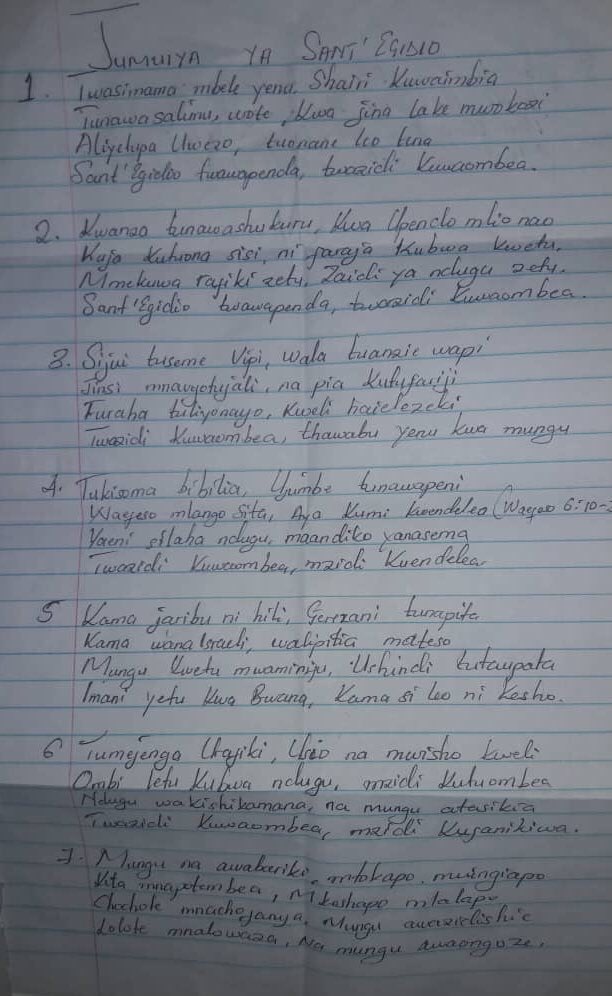 JUMUIYA YA SANT'EGIDIO
1. Twasimama mbele yenu, Shairi Kuwaimbia
Tunawasalimu, wote, Kwa jina lake mwokozi
Aliyetupa Uwezo, tuonane leo tena
Sant'Egidio twawapenda, twazidi Kuwaombea.
2. Kwanza tunawashukuru, Kwa Upendo mlio nao
Kuja Kutuona sisi, ni faraja Kubwa Kwetu.
Mmekuwa rafiki zetu, Zaidi ya ndugu zetu.
Sant'Egidio twawapenda, twazidi Kuwaombea.
3. Sijui tuseme Vipi, wala tuanzie wapi
Jinsi mnavyotujali, na pia Kutufariji
Furaha tuliyonayo, Kweli haielezeki
Twazidi Kuwaombea, thawabu yenu kwa mungu
4. Tukisoma bibilia, Ujumbe tunawapeni
Waefeso mlango Sita, Aya Kumi kuendelea (Waefeso 6:10-
Vaeni silaha ndugu, maandiko yanasema
Twazidi Kuwaombea, mzidi Kuendelea
5 Kama jaribu ni hili, Gerezani tunapita
Kama wana Israeli, walipitia mateso
Mungu Kwetu mwaminifu, Ushindi tutaupata
Imani yetu Kwa Bwana, Kama si leo ni Kesho.
6 Tumejenga Urafiki, Usio na mwisho kweli
Ombi letu Kubwa ndugu, mzidi Kutuombea
Ndugu wakishikamana, na mungu atasikia
Twazidi Kuwaombea, mzidi Kufanikiwa.
7. Mungu na awabariki, mtokapo, muingiapo
Kila mnapotembea, Mkeshapo mlalapo
Chochote mnachofanya, Mungu awazidishie
Lolote mnalowaza, Na mungu awaongoze.